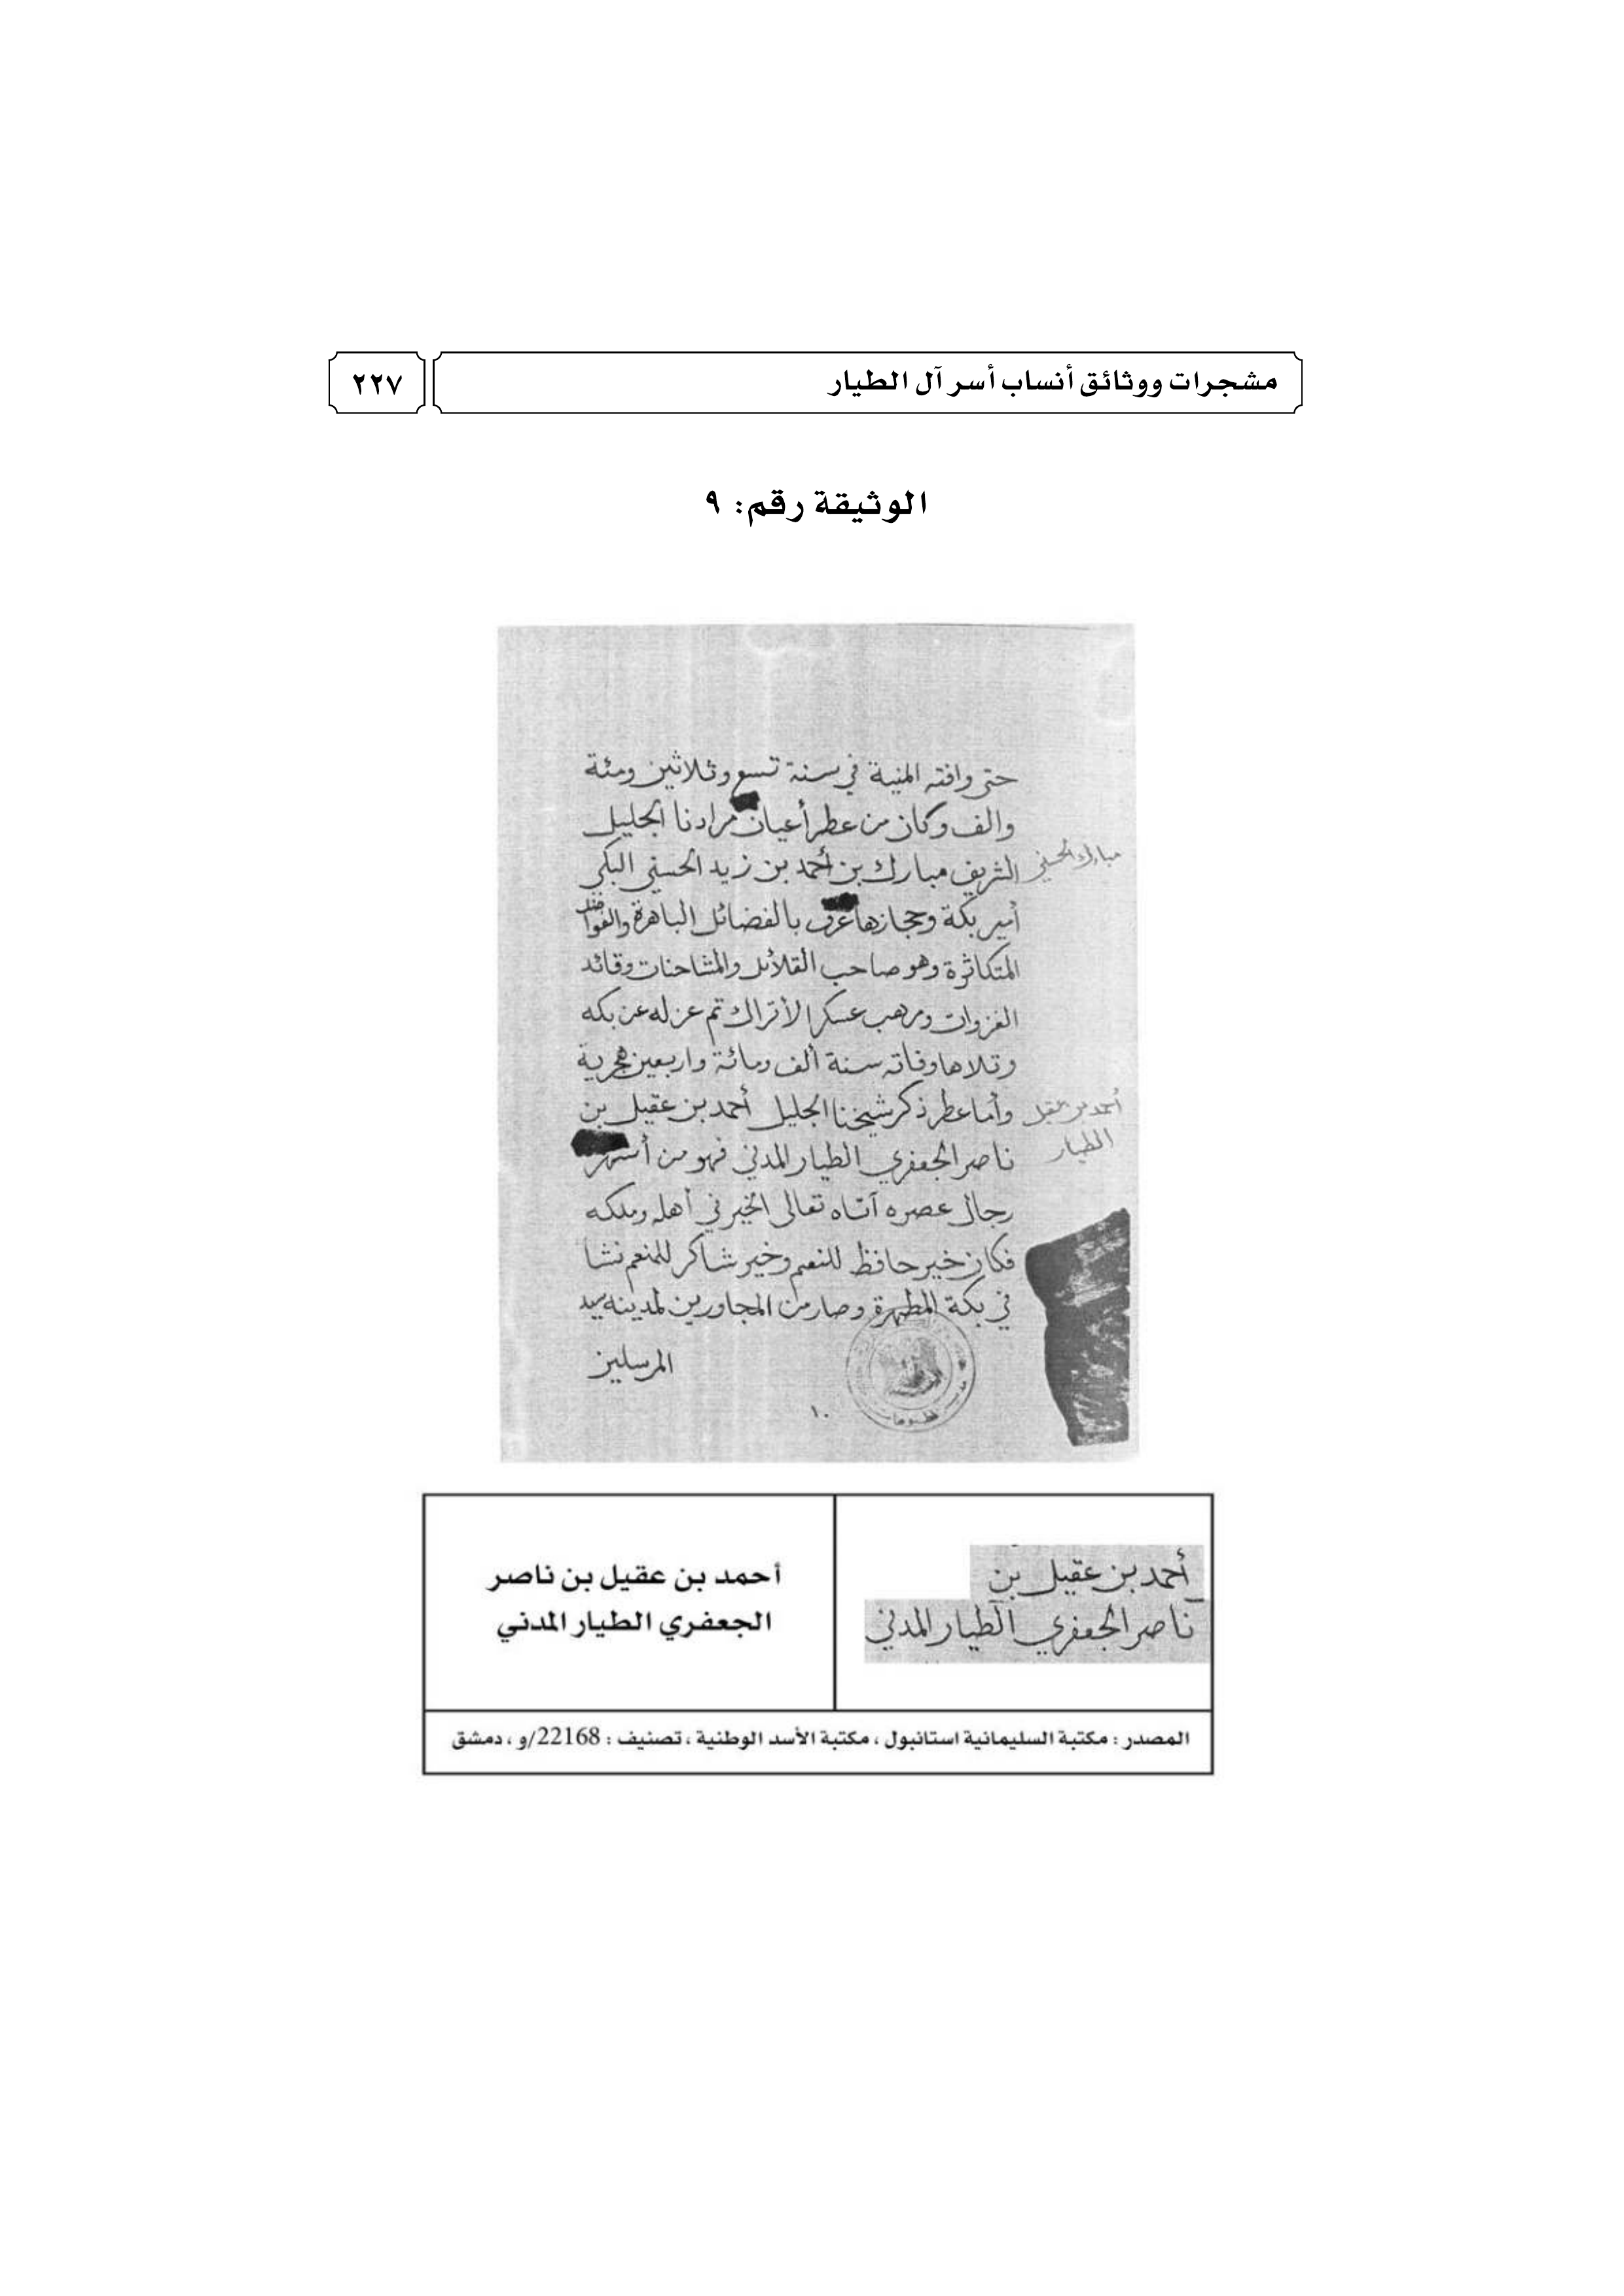 مشجرات ووثائق أنساب أسر آل الطيار
٢٢٧
الوثيقة رقم: ٩
حتى وافته المنية في سنة تسع وثلاثين ومئة
والف وكان من عطر أعيان مرادنا الجليل
مبارك الحسني
الشريف مبارك بن أحمد بن زيد الحسني البكي
أمير بكة وحجازها عرف بالفضائل الباهرة والفواضل
المتكاثرة وهو صاحب القلائل والمشاحنات وقائد
الغزوات ومرهب عسكر الأتراك تم عزله عن بكه
وتلاها وفاته سنة ألف ومائة واربعين هجرية
أحمد بن عقيل
الطيار
وأما عطر ذكر شيخنا الجليل أحمد بن عقيل بن
ناصر الجعفري الطيار المدني فهو من أشهر
رجال عصره آتاه تعالى الخير في أهله وملكه
فكان خير حافظ للنعم وخير شاكر للمنعم نشا
في بكة المطهرة وصار من المجاورين لمدينه سيد
المرسلين
١٠
أحمد بن عقيل بن
ناصر الجعفري الطيار المدني
أحمد بن عقيل بن ناصر
الجعفري الطيار المدني
المصدر : مكتبة السليمانية استانبول ، مكتبة الأسد الوطنية ، تصنيف : 22168/و ، دمشق